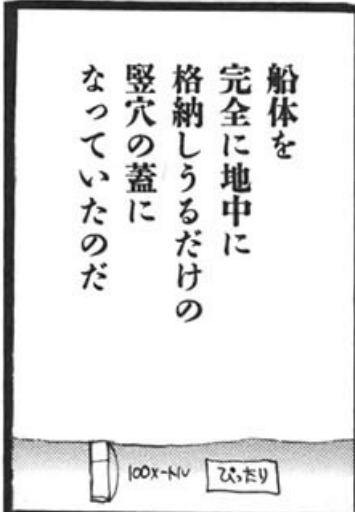 船体を
完全に地中に
格納しうるだけの
竪穴の蓋に
なっていたのだ
100メートル
ぴったり